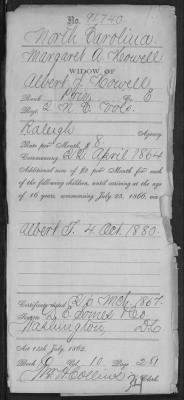 No. 91,740.
North Carolina.
Margaret A. Howell
WIDOW OF
Albert J. Howell
Rank Priv Co. E
Reg. 2 N.C. Vols.
Raleigh Agency
Rate per Month, $ 8.
Commencing 22 April 1864
Additional sum of $2 per Month for each
of the following children, until arriving at the age
of 16 years, commencing July 25, 1866, viz:
Albert J. 4 Oct. 1880.
Certificate issued 26 Mch. 1867.
Jones & Co.
Washington D.C.
Act 14th July, 1862.
Book Vol. 10. Page 251
Collins Clerk.